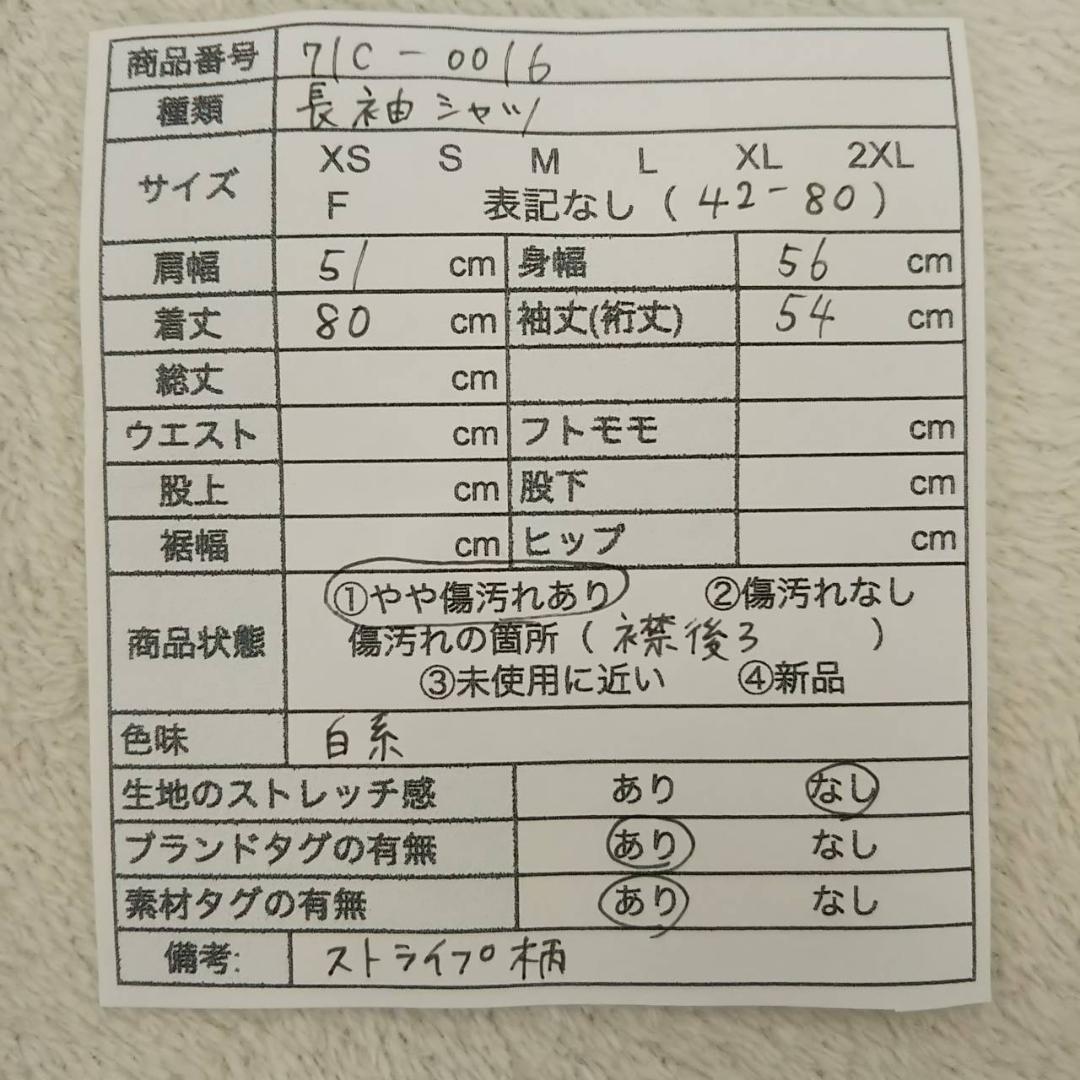 商品番号 71C-0016
種類 長袖シャツ
サイズ XS S M L XL 2XL
F 表記なし (42-80)
肩幅 51 cm 身幅 56 cm
着丈 80 cm 袖丈(裄丈) 54 cm
総丈 cm
ウエスト cm フトモモ cm
股上 cm 股下 cm
裾幅 cm ヒップ cm
商品状態 ①やや傷汚れあり ②傷汚れなし
傷汚れの箇所 ( 襟後3 )
③未使用に近い ④新品
色味 白系
生地のストレッチ感 あり なし
ブランドタグの有無 あり なし
素材タグの有無 あり なし
備考: ストライプ柄